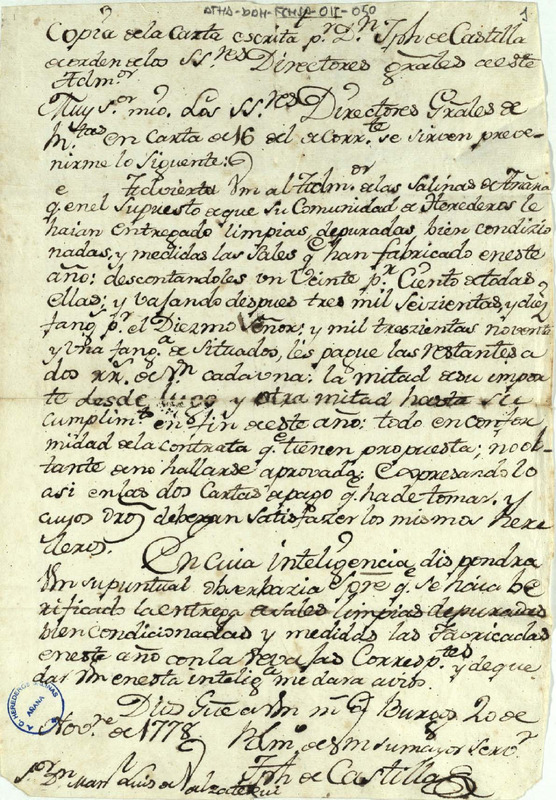 ATHA-DOH-FCHSA-011-050
1
Copia de la Carta escrita pr. Dn. Jph de Castilla
de orden de los SSres Directores grâles de este
Admor.
Muy sor. mio. Los SSres Directores Grâles de
Rtas en carta de 16 del de Corrte. se sirven preve-
nirme lo Siguente:
Advierta Vm al Admor. de las Salinas de Añana
q. en el Supuesto de que su Comunidad de Herederos le
haian entregado limpias, depuradas bien condizio
nadas, y medidas las Sales qe. han fabricado en este
año: descontandoles un Veinte pr. Ciento de todas
ellas; y vajando despues tres mil Seizientas, y diez
fang.s pr. el Diezmo Señor; y mil treszientas noventa
y una fang.a de Situados, les pague las restantes a
dos rr. de Vn cada una: la mitad de su impor
te desde luego y otra mitad hasta su
cumplimto. en fin de este año: todo en confor
midad de la contrata qe. tienen propuesta; no obs-
tante de no hallarse aprovada: Expresandolo
asi en las dos Cartas de pago q. ha de tomar, y
cuyos dros deberan satisfazer los mismos Here
deros.
En cuia inteligencia, dispondra
Vm su puntual observanzia sôre q. se haia be
rificado la entrega de sales limpias depuradas
bien condicionadas y medidas las Fabricadas
en este año con la las Corresp.tes y de que
dar Vm en esta inteliga. me dara aviso.
Dios Gûe a Vm ms. as. Burgs. 20 de
Novre. de 1778
Blmo. de Vm su mayor Servor.
Jph de Castilla
Sor. Dn. Manl. Luis de
A.C. HEREDEROS SALINAS
AÑANA